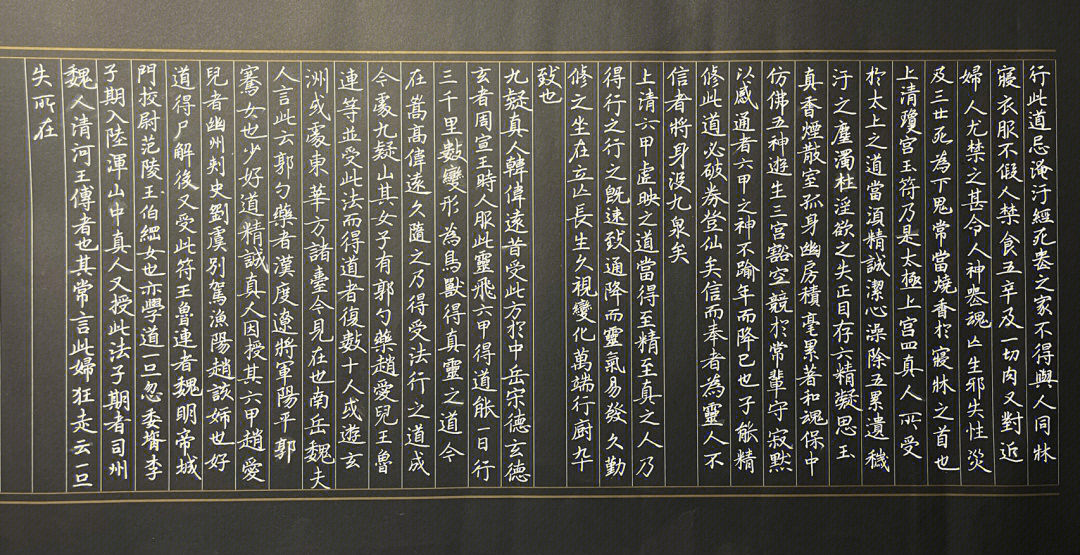 行此道忌淹汙經死喪之家不得與人同牀
寢衣服不假人禁食五辛及一切肉又對近
婦人尤禁之甚令人神喪魂亡生邪失性災
及三世死為下鬼常當燒香扵寢牀之首也
上清瓊宮玉符乃是太極上宮四真人所受
扵太上之道當湏精誠潔心澡除五累遺穢
汙之塵濁杜淫欲之失正目存六精凝思玉
真香煙散室孤身幽房積毫累著和魂保中
仿佛五神遊生三宮豁空競扵常輩守寂默
以感通者六甲之神不踰年而降已也子能精
修此道必破券登仙矣信而奉者為靈人不
信者將身沒九泉矣
上清六甲虛映之道當得至精至真之人乃
得行之行之既速致通降而靈氣易發久勤
修之坐在立亡長生久視變化萬端行厨卒
致也
九疑真人韓偉遠昔受此方扵中岳宋德玄德
玄者周宣王時人服此靈飛六甲得道能一日行
三千里數變形為鳥獸得真靈之道今
在嵩高偉遠久隨之乃得受法行之道成
今處九疑山其女子有郭勺藥趙愛兒王魯
連等並受此法而得道者復數十人或遊玄
洲或處東華方諸臺今見在也南岳魏夫
人言此云郭勺藥者漢度遼將軍陽平郭
騫女也少好道精誠真人因授其六甲趙愛
兒者幽州刾史劉虞別駕漁陽趙該姉也好
道得尸解後又受此符王魯連者魏明帝城
門挍尉范陵王伯綱女也亦學道一旦忽委聟李
子期入陸渾山中真人又授此法子期者司州
魏人清河王傳者也其常言此婦狂走云一旦
失所在